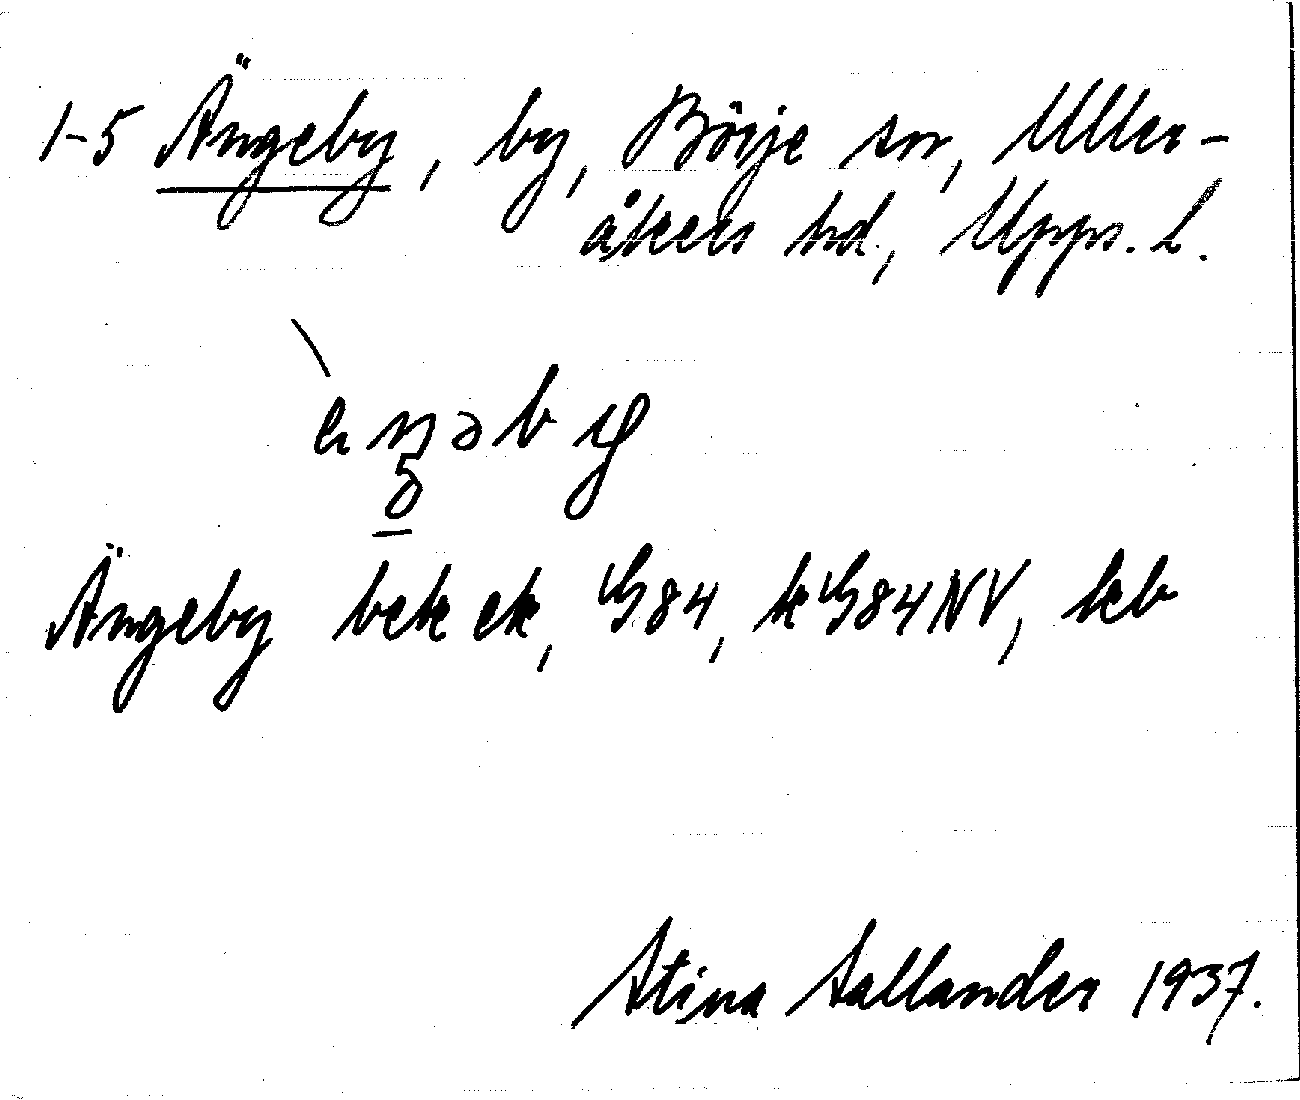 1-5 Ängeby, by, Börje sn, Uller-
åkers hd., Upps. L.
Ängeby bek ek, G84, kG84NV, kb
Stina Sallander 1937.